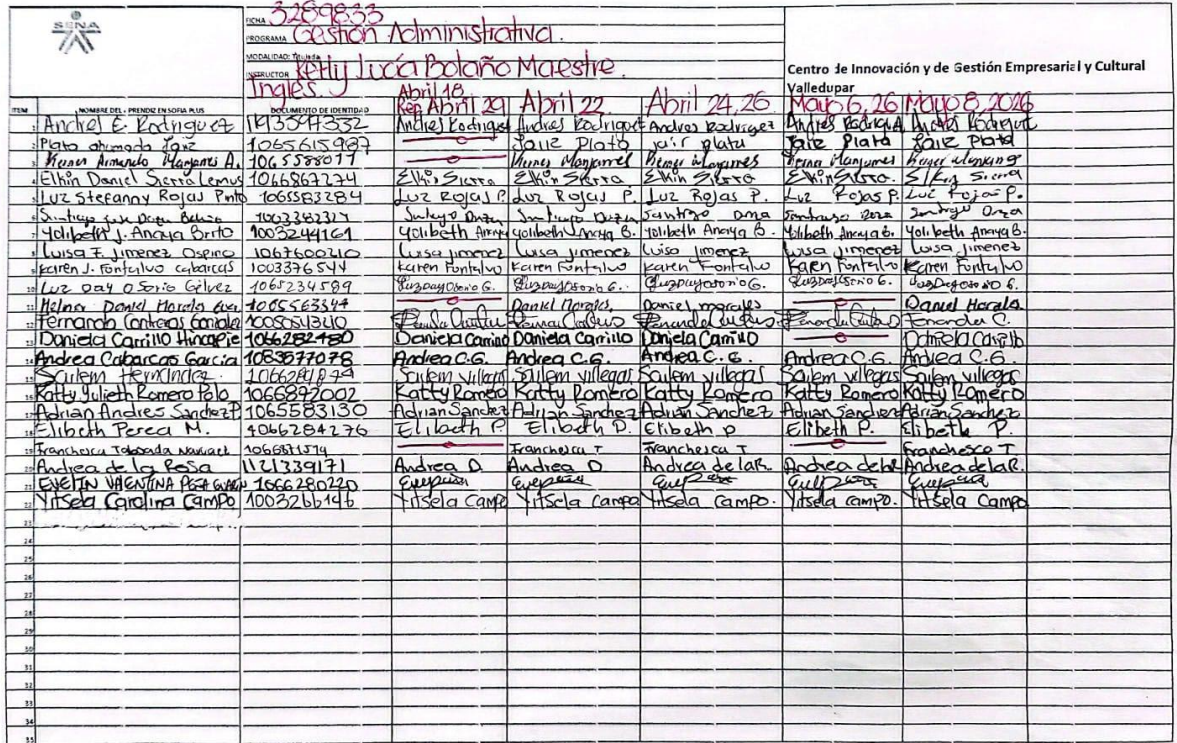 SENA
FICHA 3289833
PROGRAMA Gestión Administrativa.
MODALIDAD: Titulada
INSTRUCTOR Kelly Lucía Bolaño Maestre.
Inglés.
Centro de Innovación y de Gestión Empresarial y Cultural
Valledupar
Abril 18
ITEM NOMBRE DEL APRENDIZ EN SOFIA PLUS DOCUMENTO DE IDENTIDAD Rep Abril 29 Abril 22 Abril 24, 26 Mayo 6, 26 Mayo 8, 2026
1 Andres E. Rodriguez Andres Rodriguez Andres Rodriguez Andres Rodriguez Andres Rodriguez
2 Plata ahumada Jair 1065615987 Jair Plata jair plata Jair Plata Jair Plata
3 Keiner Armando Manjarres A. 1065588077 Keiner Manjarres
4 Elkin Daniel Sierra Lemus 1066867274 Elkin Sierra Elkin Sierra Elkin Sierra Elkin Sierra. Elkin Sierra
5 Luz Stefanny Rojas Pinto 1065583284 Luz Rojas P. Luz Rojas P. Luz Rojas P. Luz Rojas P. Luz Rojas P.
6 1003382317
7 Yolibeth J. Anaya Brito 1003244161 Yolibeth Anaya Yolibeth Anaya B. Yolibeth Anaya B. Yolibeth Anaya B. Yolibeth Anaya B.
8 Luisa F. Jimenez Ospino 1067600210 Luisa jimenez Luisa jimenez Luisa jimenez Luisa jimenez Luisa jimenez
9 Karen J. Fontalvo cabarcas 1003376544 Karen Fontalvo Karen Fontalvo Karen Fontalvo Karen Fontalvo Karen Fontalvo
10 Luz Day Osorio Gélvez 1065234589 Luzdayosorio G. Luzdayosorio G. Luzdayosorio G. Luzdayosorio G. Luzdayosorio G.
11 Daniel Morales 1065563344 Daniel Morales. Daniel morales Daniel Morales.
12 Fernando Contreras Fernando C.
13 Daniela Carrillo Hincapie 1066282480 Daniela Carrillo Daniela Carrillo Daniela Carrillo Daniela Carrillo
14 Andrea Cabarcas Garcia 1083577078 Andrea C.G. Andrea C.G. Andrea C.G. Andrea C.G. Andrea C.G.
15 Sailem Hernandez. Sailem villegas Sailem villegas Sailem villegas Sailem villegas Sailem villegas
16 Katty Julieth Romero Polo 1066872002 Katty Romero Katty Romero Katty Romero Katty Romero Katty Romero
17 Adrian Andres Sanchez P 1065583130 Adrian Sanchez Adrian Sanchez Adrian Sanchez Adrian Sanchez Adrian Sanchez
18 Elibeth Perea M. 1066284276 Elibeth P. Elibeth P. Elibeth P Elibeth P. Elibeth P.
19 Franchesca Franchesca T Franchesca T Franchesca T
20 Andrea de la Rosa 1121339171 Andrea D. Andrea D Andrea de laR. Andrea delaR Andrea de laR.
21 EVELIN VALENTINA 1066280220
22 Yitsela Carolina Campo 1003266146 Yitsela Campo Yitsela Campo Yitsela Campo. Yitsela Campo. Yitsela Campo
23
24
25
26
27
28
29
30
31
32
33
34
35